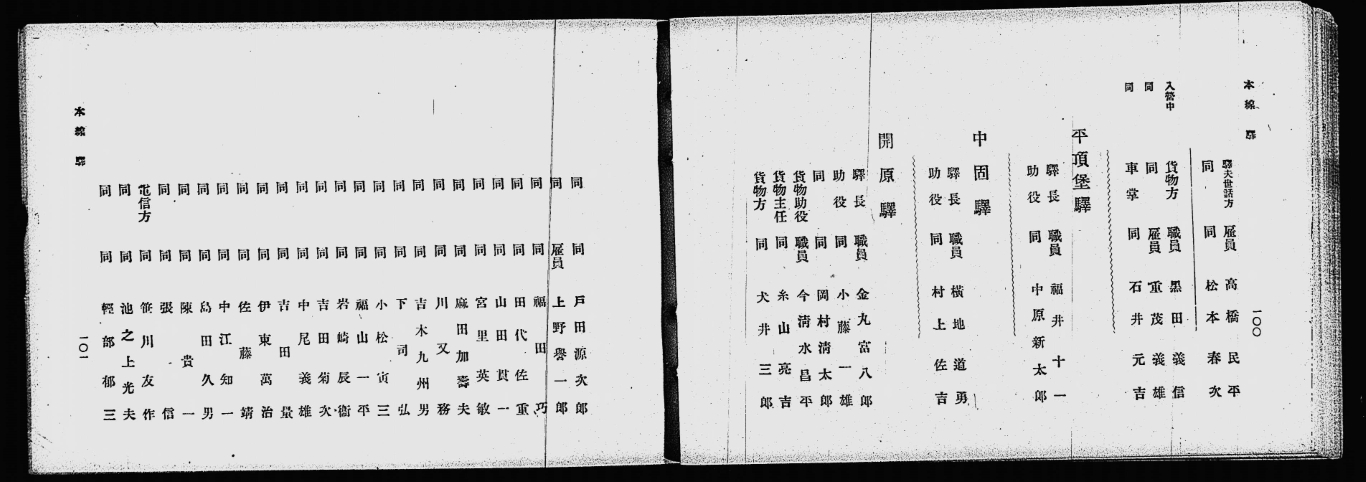 本線驛
一〇〇
驛夫世話方 雇員 高橋民平
同 同 松本春次
入營中 貨物方 職員 黑田義信
同 同 雇員 重茂義雄
同 車掌 同 石井元吉
平頂堡驛
驛長 職員 福井十一
助役 同 中原新太郎
中固驛
驛長 職員 橫地道勇
助役 同 村上佐吉
開原驛
驛長 職員 金丸富八郎
助役 同 小藤一雄
同 同 岡村淸太郎
貨物助役 職員 今淸水昌平
貨物主任 同 糸山亮吉
貨物方 同 犬井三郎
同 同 戶田源次郎
同 雇員 上野譽一郎
同 同 福田巧
同 同 田代佐重
同 同 山田貫一
同 同 宮里英敏
同 同 麻田加壽夫
同 同 川又務
同 同 吉木九州男
同 同 下司弘
同 同 小松寅三
同 同 福山一平
同 同 岩崎辰衞
同 同 吉田菊次
同 同 中尾義雄
同 同 吉田量
同 同 伊東萬治
同 同 佐藤靖
同 同 中江知一
同 同 島田久男
同 同 陳貴一
同 同 張信
電信方 同 笹川友作
同 同 池之上光夫
同 同 輕部郁三
本線驛
一〇一